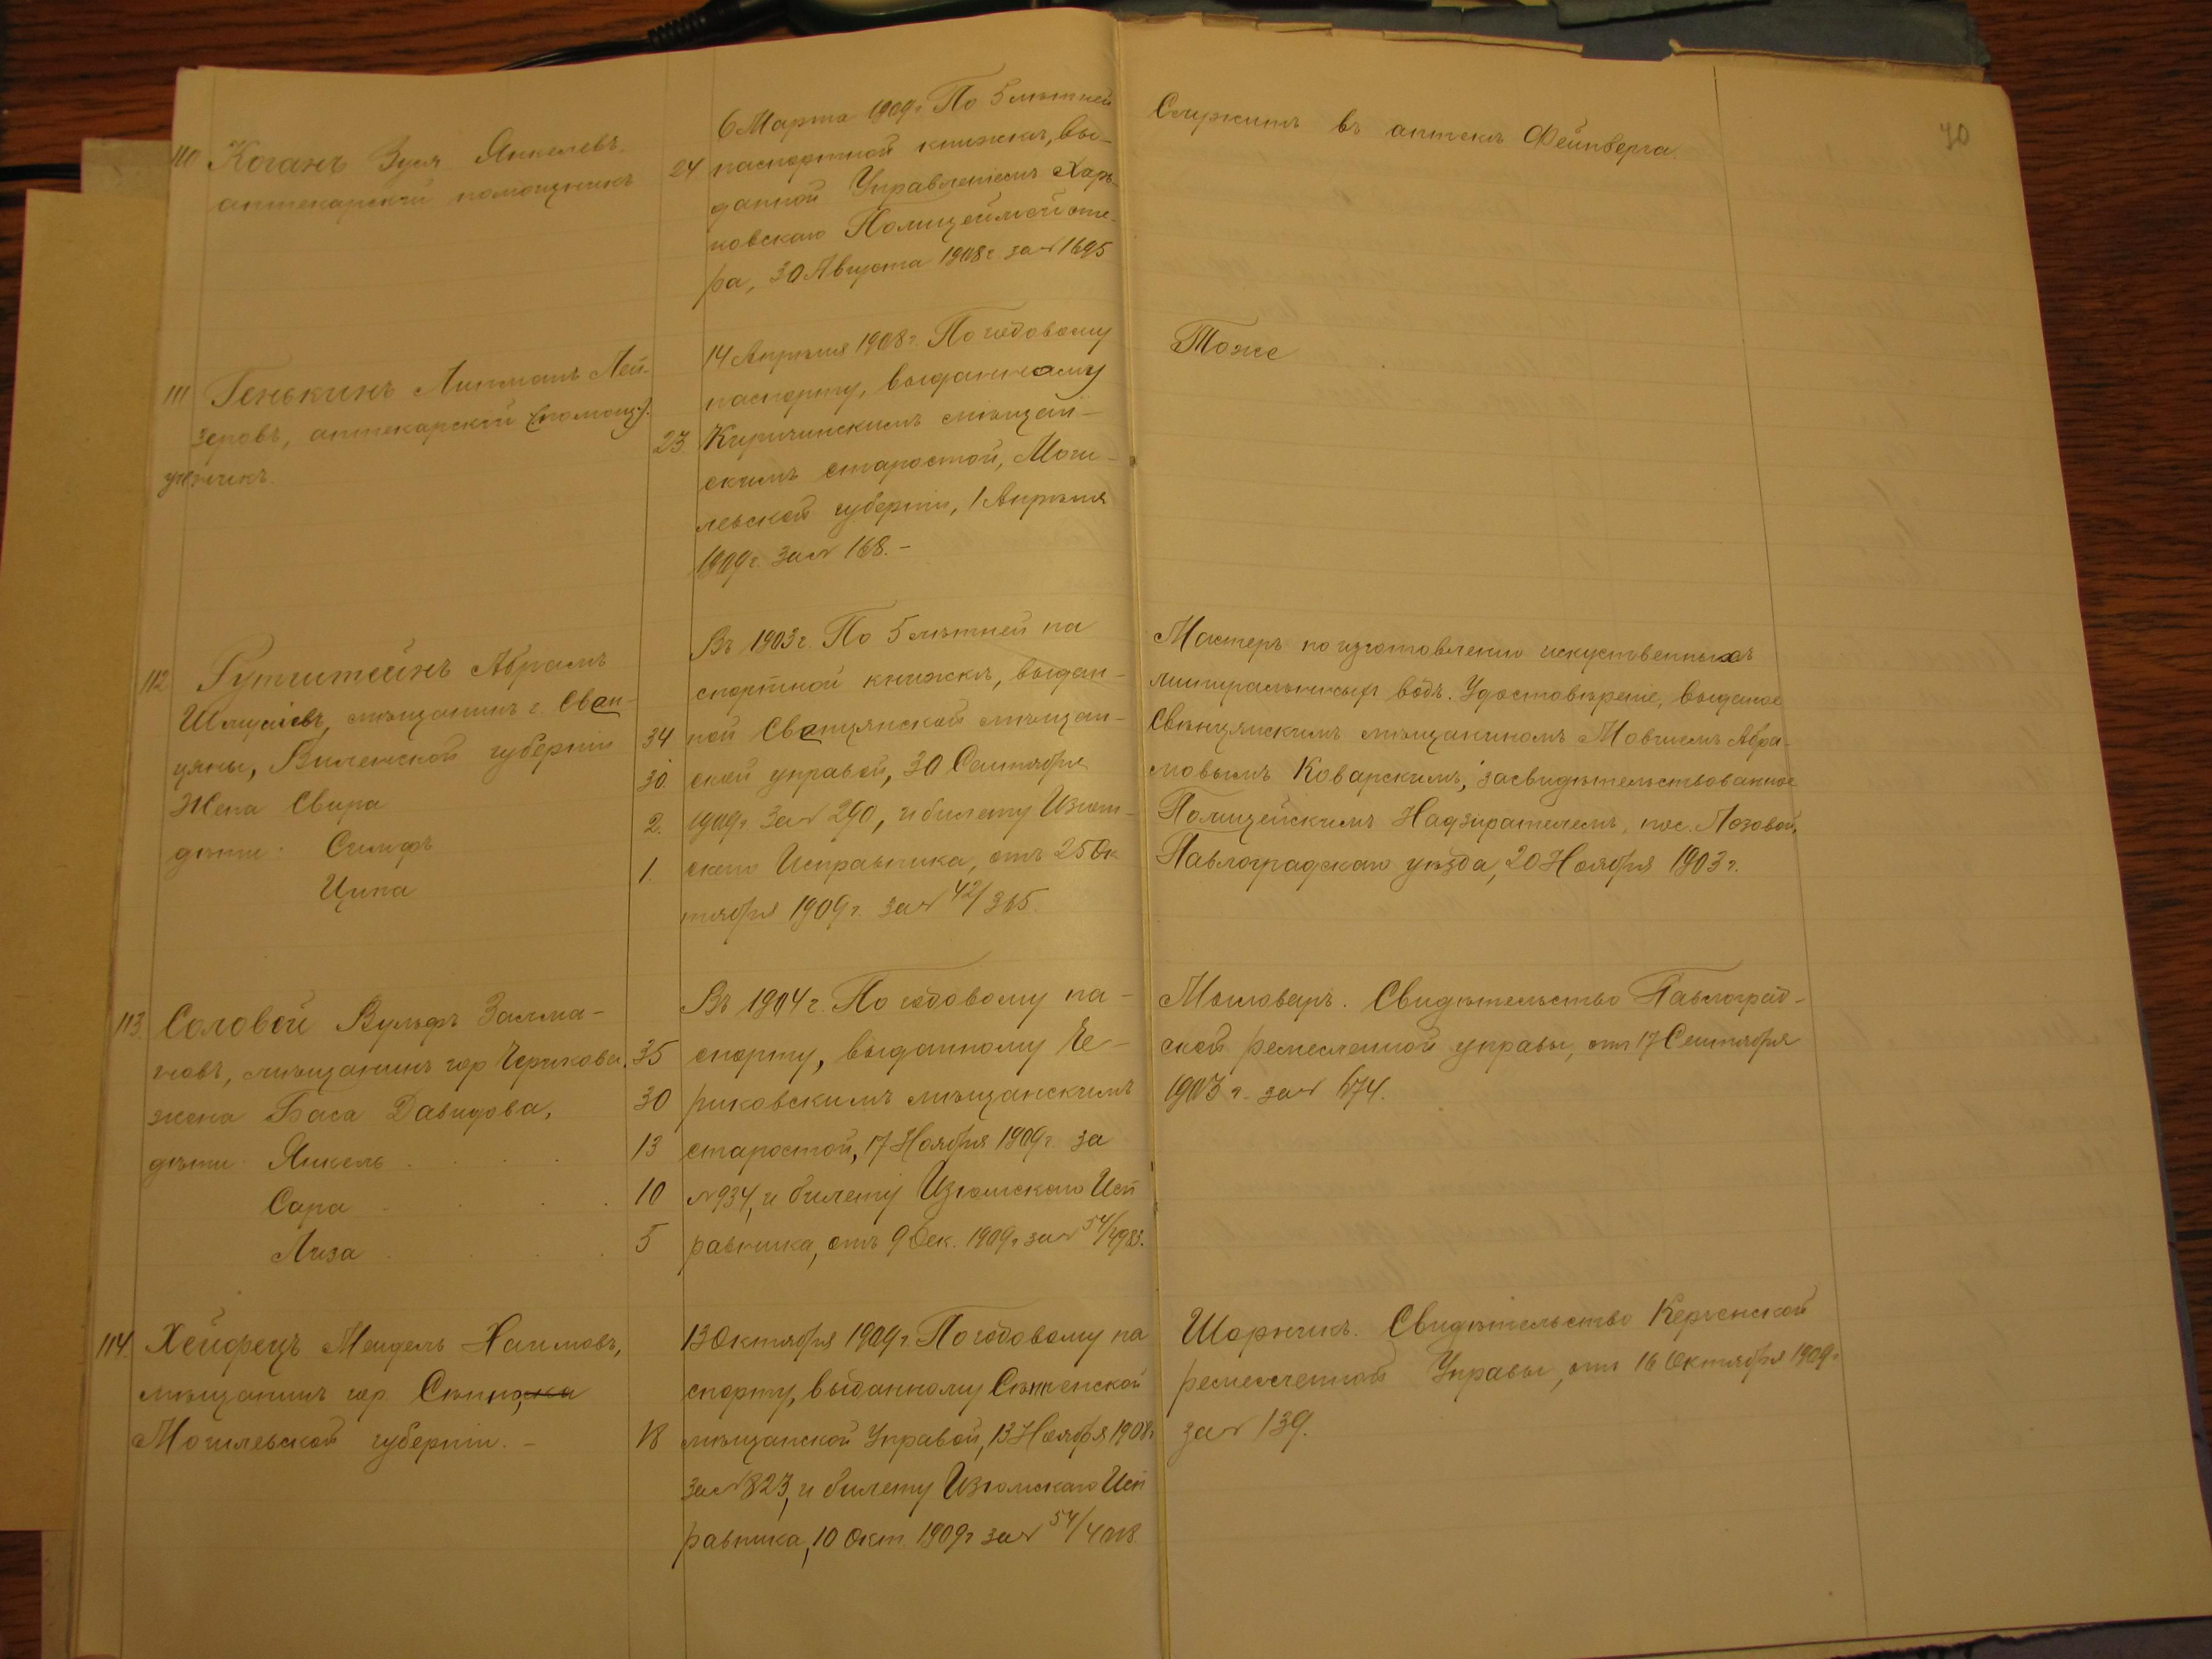 70
110 Коганъ Зуся Янкелевъ
аптекарскій помощникъ
24
6 Марта 1909 г. По 5 лѣтней
паспортной книжкѣ, вы-
данной Управленіемъ Харь-
ковскаго Полицеймейсте-
ра, 30 Августа 1908 г. за № 1695
Служитъ въ аптекѣ Фейнберга.
111 Генькинъ Липманъ Лей-
зеровъ, аптекарскій (помощ.)
ученикъ.
23.
14 Апрѣля 1908 г. По годовому
паспорту, выданному
Киричинскимъ мѣщан-
скимъ старостой, Моги-
левской губерніи, 1 Апрѣля
1909 г. за № 168. –
Тоже
112 Гутштейнъ Абрамъ
мѣщанинъ г. Свен-
цяны, Виленской губерніи
Жена Свира
дѣти: Симфъ
Ципа
34
30.
2.
1.
Въ 1903 г. По 5 лѣтней па
спортной книжкѣ, выдан-
ной Свенцянской мѣщан-
ской управой, 30 Сентября
1909 г. за № 290, и билету Изюм-
скаго Исправника, отъ 25 Ок
тября 1909 г. за № 42/365.
Мастеръ по изготовленію искуственныхъ
минеральныхъ водъ. Удостовѣреніе, выданое
Свѣнцянскимъ мѣщаниномъ Мовшемъ Абра-
мовымъ Коварскимъ, засвидѣтельствованное
Полицейскимъ Надзирателемъ, пос. Лозовой,
Павлоградскаго уѣзда, 20 Ноября 1903 г.
113. Соловой Вульфъ Залма-
новъ, мѣщанинъ гор Черикова.
жена Баса Давидова,
дѣти: Янкель . . . .
Сара . . . .
Лиза . . . .
35
30
13
10
5
Въ 1904 г. По годовому па-
спорту, выданному Че-
риковскимъ мѣщанскимъ
старостой, 17 Ноября 1909 г. за
№ 934, и билету Изюмскаго Исп
равника, отъ 9 Дек. 1909 г. за № 54/4983.
Мыловаръ. Свидѣтельство Павлоград-
ской ремесленной управы, отъ 17 Сентября
1903 г. за № 674.
114. Хейфецъ Мендель Наимовъ,
мѣщанинъ гор
Могилевской губерніи. –
18
13 Октября 1909 г. По годовому па
спорту, выданному Сѣнненской
мѣщанской Управой, 13 Ноября 1908 г
за № 823, и билету Изюмскаго Исп
равника, 10 Окт. 1909 г за № 54/
Шорникъ. Свидѣтельство Керченской
ремесленной Управы, отъ 16 Октября 1909 г
за № 139.